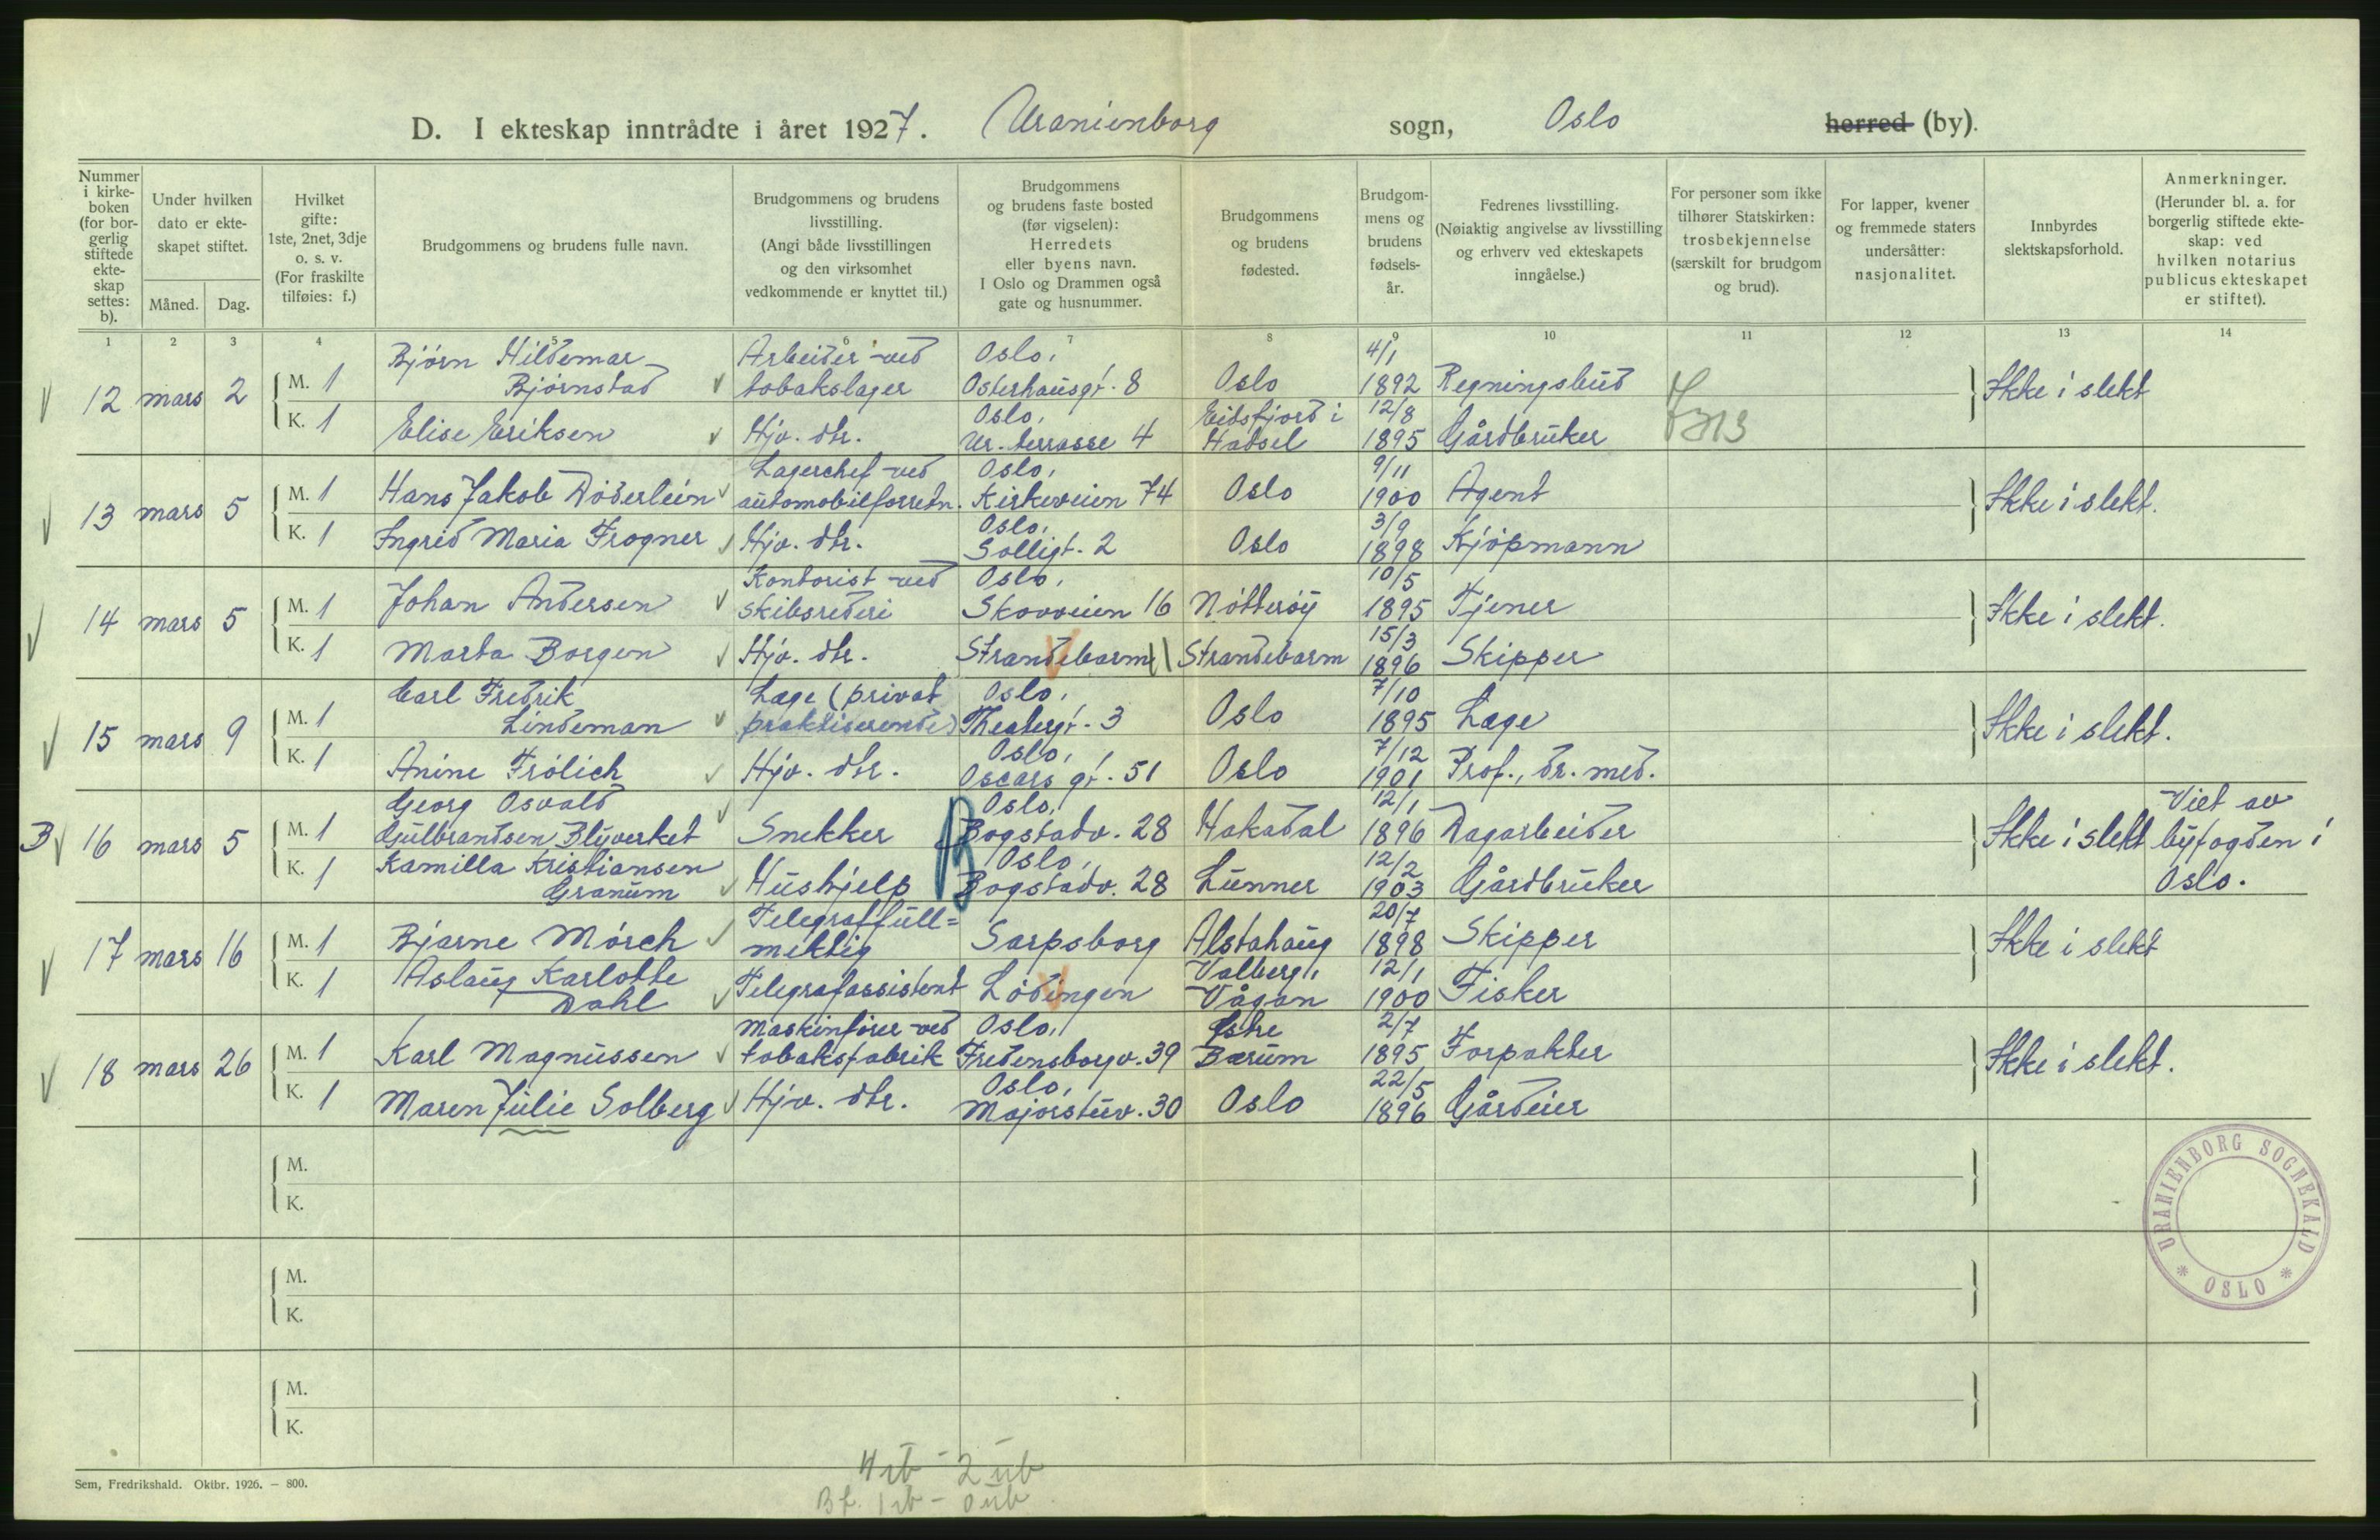 D. I ekteskap inntrådte i året 1927. Uranienborg sogn, Oslo herred (by).
Nummer i kirke-boken (for bor-gerlig stiftede ekte-skap settes: b).
Under hvilken dato er ekte-skapet stiftet.
Måned. Dag.
Hvilket gifte: 1ste, 2net, 3dje o. s. v. (For fraskilte tilføies: f.)
Brudgommens og brudens fulle navn.
Brudgommens og brudens livsstilling. (Angi både livsstillingen og den virksomhet vedkommende er knyttet til.)
Brudgommens og brudens faste bosted (før vigselen): Herredets eller byens navn. I Oslo og Drammen også gate og husnummer.
Brudgommens og brudens fødested.
Brudgom-mens og brudens fødsels-år.
Fedrenes livsstilling. (Nøiaktig angivelse av livsstilling og erhverv ved ekteskapets inngåelse.)
For personer som ikke tilhører Statskirken: trosbekjennelse (særskilt for brudgom og brud).
For lapper, kvener og fremmede staters undersåtter: nasjonalitet.
Innbyrdes slektskapsforhold.
Anmerkninger. (Herunder bl. a. for borgerlig stiftede ekte-skap: ved hvilken notarius publicus ekteskapet er stiftet).
1 2 3 4 5 6 7 8 9 10 11 12 13 14
12 mars 2 M. 1 Bjørn Hildemar Bjørnstad Arbeider ved tobakslager Oslo, Osterhausgt. 8 Oslo 4/1 1892 Regningsbud Ikke i slekt
K. 1 Elise Eriksen Hjv. dtr. Oslo, Ur. terrasse 4 Eidsfjord i Hadsel 12/8 1895 Gårdbruker
13 mars 5 M. 1 Hans Jakob Döderlein Lagerchef ved automobilforretn. Oslo, Kirkeveien 74 Oslo 9/11 1900 Agent Ikke i slekt.
K. 1 Ingrid Maria Frogner Hjv. dtr. Oslo, Solligt. 2 Oslo 3/9 1898 Kjöpmann
14 mars 5 M. 1 Johan Andersen Kontorist ved skibsrederi Oslo, Skovveien 16 Nötteröy 10/5 1895 Tjener Ikke i slekt.
K. 1 Marta Borgen Hjv. dtr. Strandebarm Strandebarm 15/3 1896 Skipper
15 mars 9 M. 1 Carl Fredrik Lindeman Læge (privat praktiserende) Oslo, Theatergt. 3 Oslo 7/10 1895 Læge Ikke i slekt.
K. 1 Anine Frölich Hjv. dtr. Oslo, Oscars gt. 51 Oslo 7/12 1901 Prof., dr. med.
B 16 mars 5 M. 1 Georg Osvald Gulbrandsen Blyverket Snekker Oslo, Bogstadv. 28 Hakadal 12/1 1896 Dagarbeider Ikke i slekt Viet av byfogden i Oslo.
K. 1 Kamilla Kristiansen Granum Hushjelp Oslo, Bogstadv. 28 Lunner 12/2 1903 Gårdbruker
17 mars 16 M. 1 Bjarne Mörch Telegraffull= mektig Sarpsborg Alstahaug 20/7 1898 Skipper Ikke i slekt
K. 1 Aslaug Karlotte Dahl Telegrafassistent Lödingen Valberg, Vågan 12/1 1900 Fisker
18 mars 26 M. 1 Karl Magnussen Maskinfører ved tobaksfabrik Oslo, Fredensborgv. 39 Østre Bærum 2/7 1895 Forpakter Ikke i slekt.
K. 1 Maren Julie Solberg Hjv. dtr. Oslo, Majorstuv. 30 Oslo 22/5 1896 Gårdeier
M.
K.
M.
K.
M.
K.
URANIENBORG SOGNEKALD * OSLO *
Sem, Fredrikshald. Oktbr. 1926. — 800.
4 rb - 2 ub
Bf. 1 rb - 0 ub